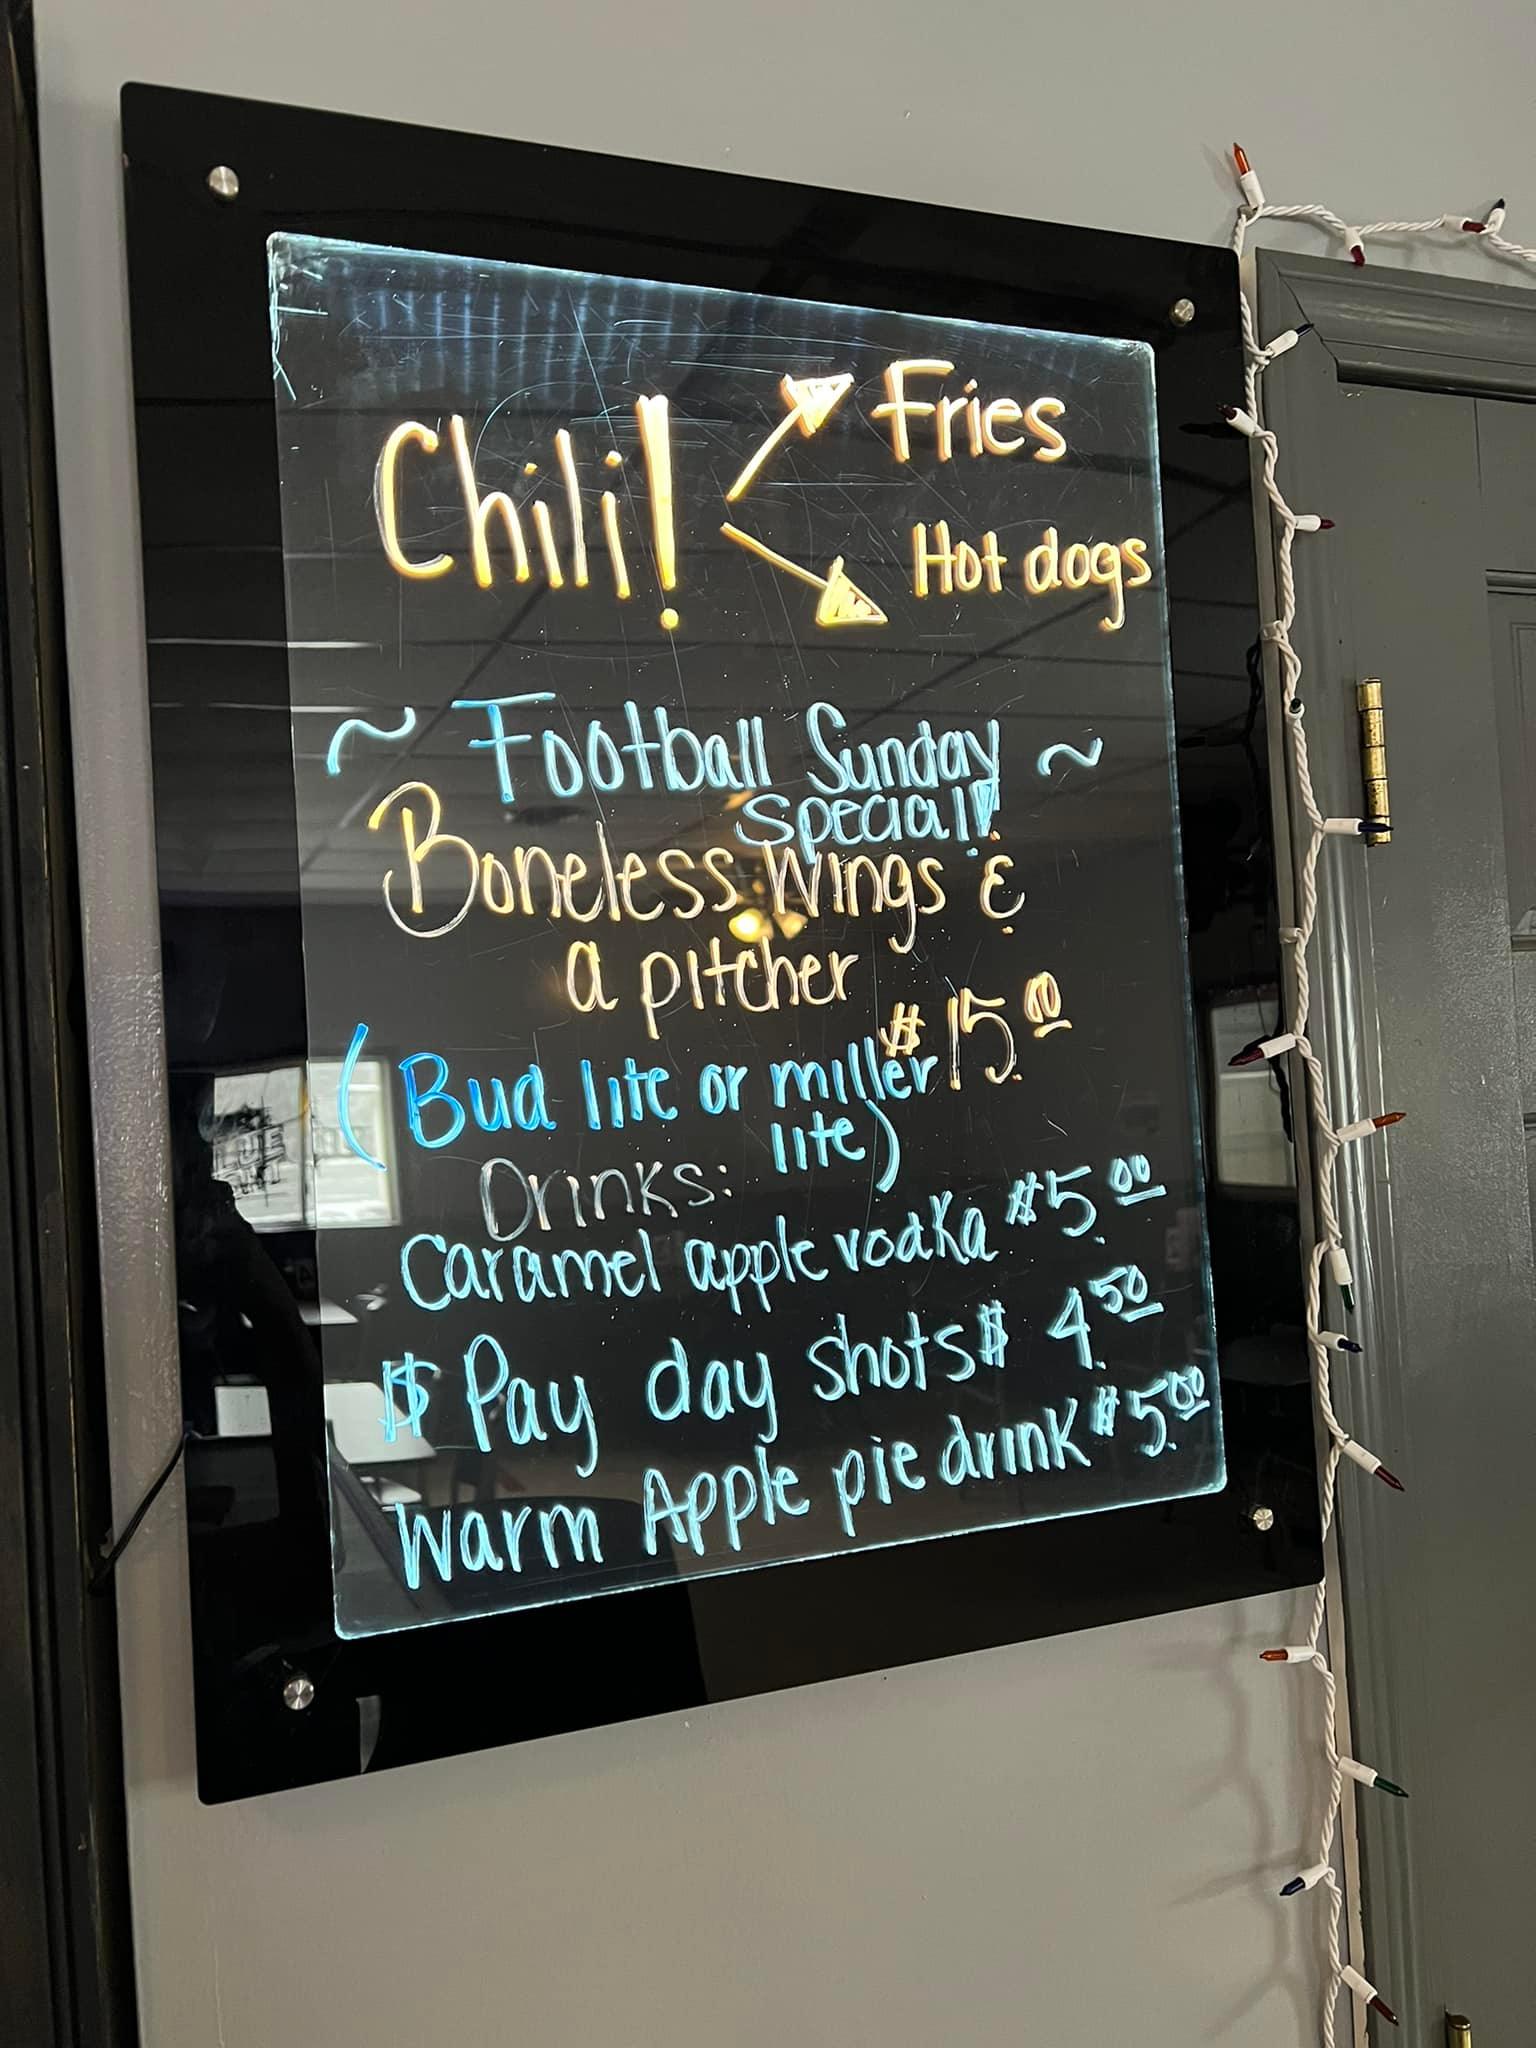 Chili!
Fries
Hot dogs
~ Football Sunday ~
special!!
Boneless wings &
a pitcher
$15.00
(Bud lite or miller
lite)
Drinks:
Caramel apple vodka $5.00
$ Pay day shots $ 4.50
Warm Apple pie drink $5.00